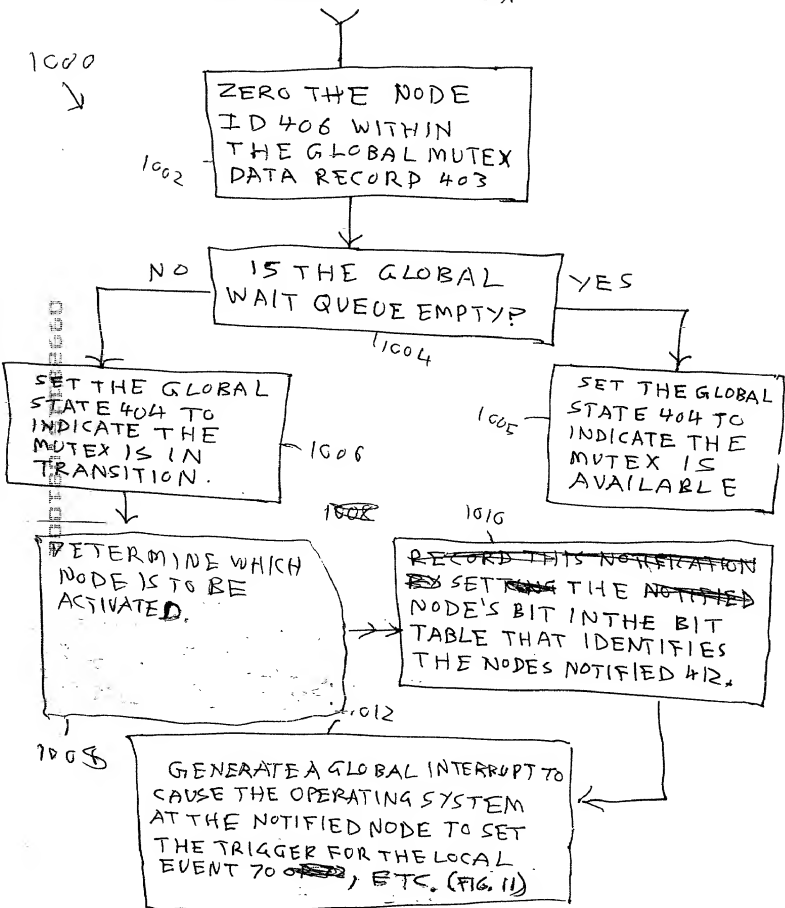 1000
ZERO THE NODE
ID 406 WITHIN
THE GLOBAL MUTEX
DATA RECORD 403
1002
NO
IS THE GLOBAL
WAIT QUEUE EMPTY?
YES
1004
SET THE GLOBAL
STATE 404 TO
INDICATE THE
MUTEX IS IN
TRANSITION.
1006
SET THE GLOBAL
STATE 404 TO
INDICATE THE
MUTEX IS
AVAILABLE
1005
DETERMINE WHICH
NODE IS TO BE
ACTIVATED.
1008
1010
RECORD THIS NOTIFICATION
BY SET THE NOTIFIED
NODE'S BIT IN THE BIT
TABLE THAT IDENTIFIES
THE NODES NOTIFIED 412.
1012
GENERATE A GLOBAL INTERRUPT TO
CAUSE THE OPERATING SYSTEM
AT THE NOTIFIED NODE TO SET
THE TRIGGER FOR THE LOCAL
EVENT 70, ETC. (FIG. 11)